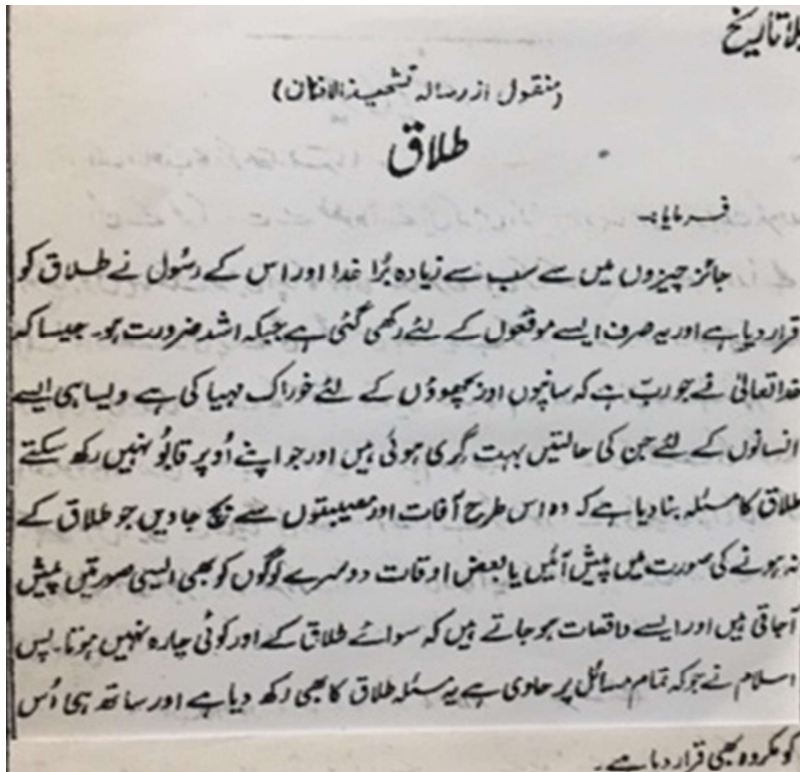 بلا تاریخ
(منقول از رسالہ تشحیذ الاذہان)
طلاق
فرمایا:۔
جائز چیزوں میں سے سب سے زیادہ بُرا خدا اور اس کے رسُول نے طلاق کو
قرار دیا ہے اور یہ صرف ایسے موقعوں کے لئے رکھی گئی ہے جبکہ اشد ضرورت ہو۔ جیسا کہ
خدا تعالیٰ نے جو ربّ ہے کہ سانپوں اور بچھوؤں کے لئے خوراک مہیا کی ہے ویسا ہی ایسے
انسانوں کے لئے جن کی حالتیں بہت گِری ہوئی ہیں اور جو اپنے اُوپر قابُو نہیں رکھ سکتے
طلاق کا مسئلہ بنا دیا ہے کہ وہ اس طرح آفات اور مصیبتوں سے بچ جاویں جو طلاق کے
نہ ہونے کی صورت میں پیش آئیں یا بعض اوقات دوسرے لوگوں کو بھی ایسی صورتیں پیش
آجاتی ہیں اور ایسے واقعات ہو جاتے ہیں کہ سوائے طلاق کے اور کوئی چارہ نہیں ہوتا۔ پس
اسلام نے جو کہ تمام مسائل پر حاوی ہے یہ مسئلہ طلاق کا بھی رکھ دیا ہے اور ساتھ ہی اُس
کو مکروہ بھی قرار دیا ہے۔